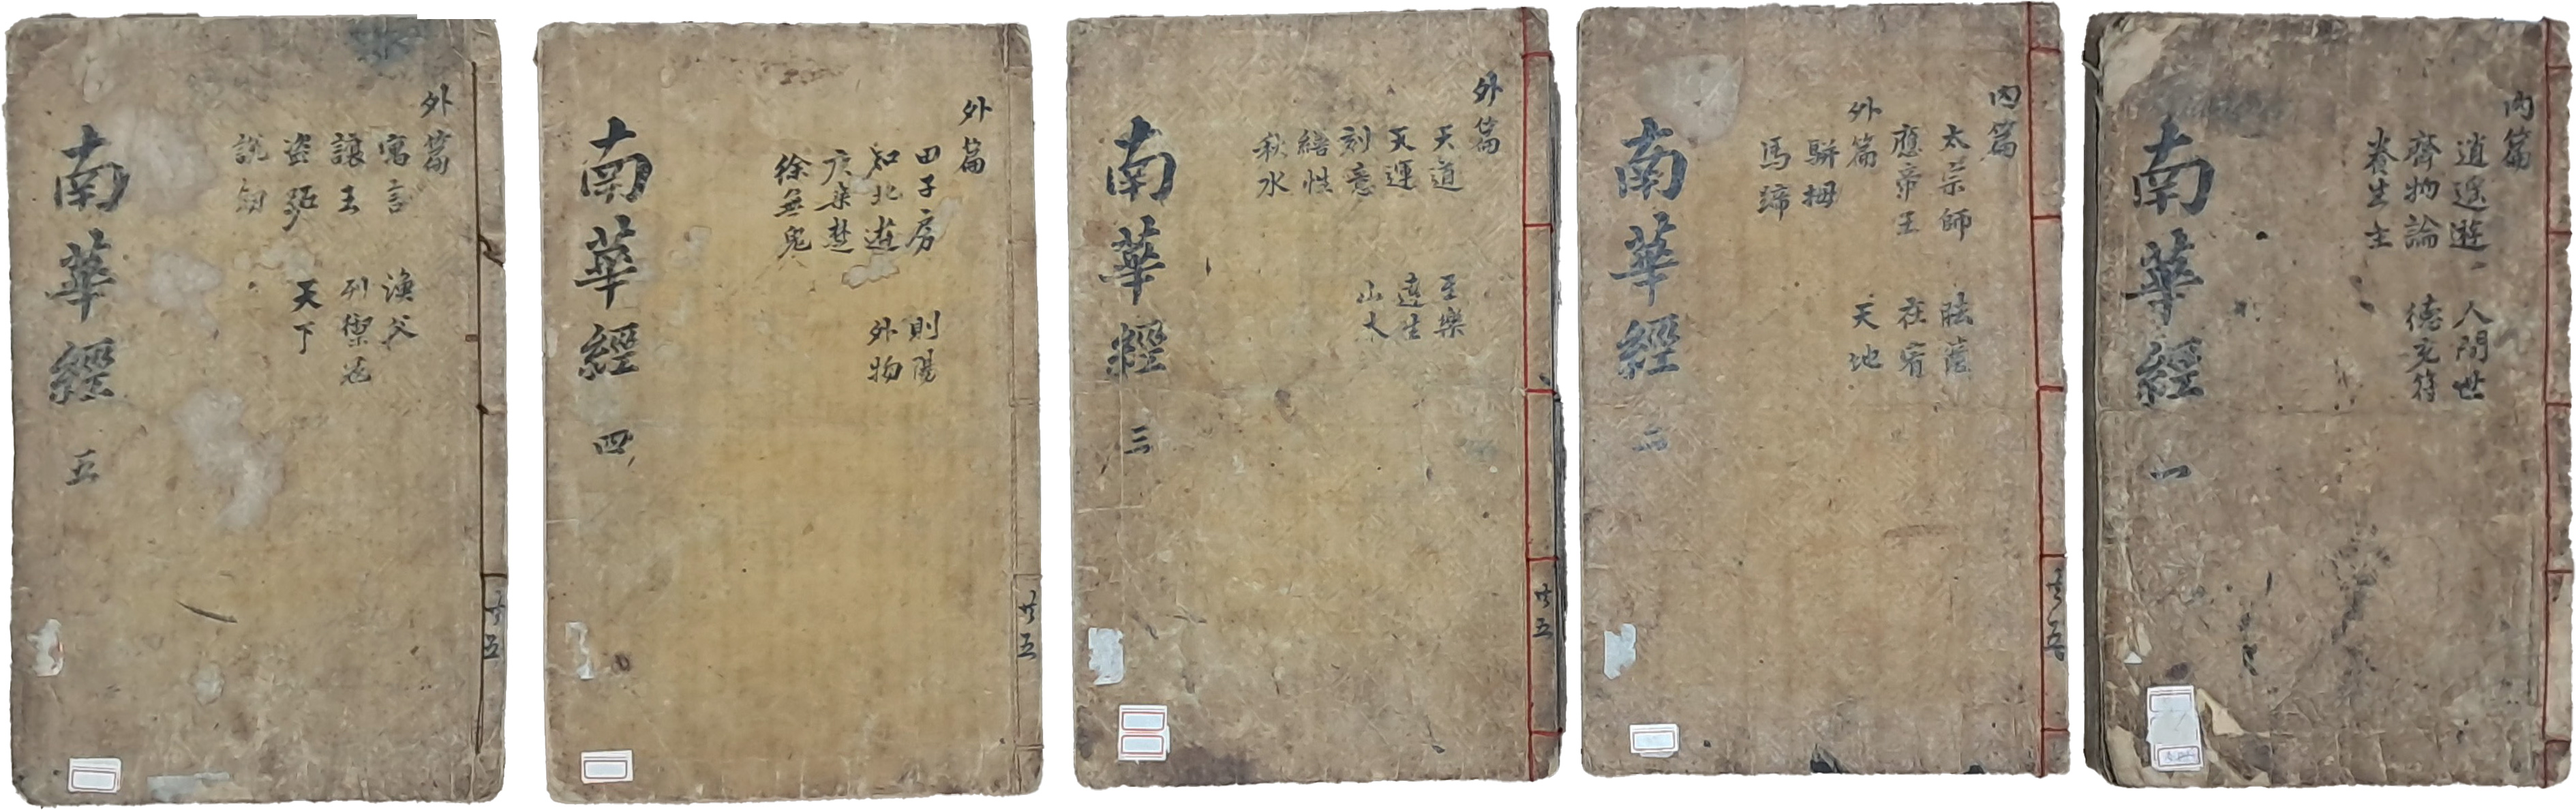 內篇
逍遙遊
齊物論
養生主
人間世
德充符
南華經 一
內篇
太宗師
應帝王
外篇
駢拇
馬蹄
胠篋
在宥
天地
南華經 二
共五
外篇
天道
天運
刻意
繕性
秋水
至樂
達生
山木
南華經 三
共五
外篇
田子房
知北遊
庚桑楚
徐無鬼
則陽
外物
南華經 四
共五
外篇
寓言
讓王
盜跖
說劍
漁父
列禦寇
天下
南華經 五
共五